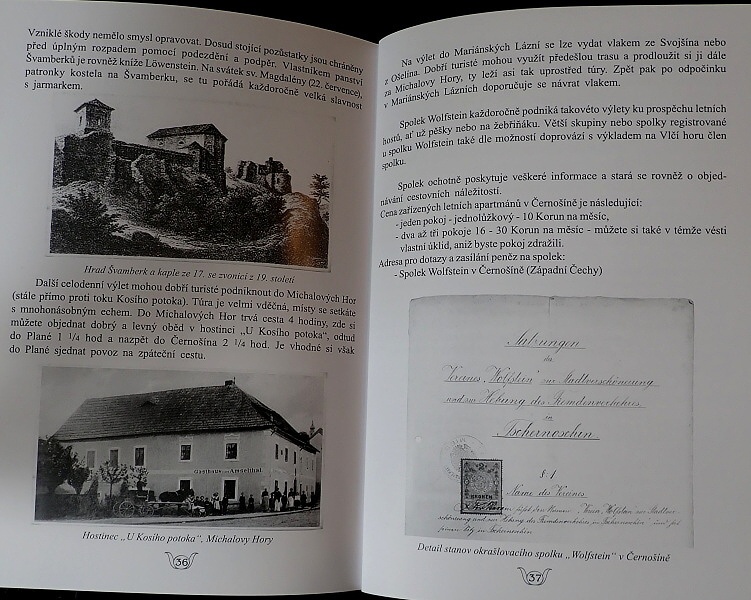 Vzniklé škody nemělo smysl opravovat. Dosud stojící pozůstatky jsou chráněny
před úplným rozpadem pomocí podezdění a podpěr. Vlastníkem panství
Švamberků je rovněž kníže Löwenstein. Na svátek sv. Magdalény (22. července),
patronky kostela na Švamberku, se tu pořádá každoročně velká slavnost
s jarmarkem.
Hrad Švamberk a kaple ze 17. se zvonicí z 19. století
Další celodenní výlet mohou dobří turisté podniknout do Michalových Hor
(stále přímo proti toku Kosího potoka). Túra je velmi vděčná, místy se setkáte
s mnohonásobným echem. Do Michalových Hor trvá cesta 4 hodiny, zde si
můžete objednat dobrý a levný oběd v hostinci „U Kosího potoka“, odtud
do Plané 1 1/4 hod a nazpět do Černošína 2 1/4 hod. Je vhodné si však
do Plané sjednat povoz na zpáteční cestu.
Gasthaus zum Amselthal.
Hostinec „U Kosího potoka“, Michalovy Hory
36
Na výlet do Mariánských Lázní se lze vydat vlakem ze Svojšína nebo
z Ošelína. Dobří turisté mohou využít předešlou trasu a prodloužit si ji dále
za Michalovy Hory, ty leží asi tak uprostřed túry. Zpět pak po odpočinku
v Mariánských Lázních doporučuje se návrat vlakem.
Spolek Wolfstein každoročně podniká takovéto výlety ku prospěchu letních
hostů, ať už pěšky nebo na žebřiňáku. Větší skupiny nebo spolky registrované
u spolku Wolfstein také dle možností doprovází s výkladem na Vlčí horu člen
spolku.
Spolek ochotně poskytuje veškeré informace a stará se rovněž o objed-
návání cestovních náležitostí.
Cena zařízených letních apartmánů v Černošíně je následující:
- jeden pokoj - jednolůžkový - 10 Korun na měsíc,
- dva až tři pokoje 16 - 30 Korun na měsíc - můžete si také v témže věsti
vlastní úklid, aniž byste pokoj zdražili.
Adresa pro dotazy a zasílání peněz na spolek:
- Spolek Wolfstein v Černošíně (Západní Čechy)
Satzungen
des
Vereines „Wolfstein" zur Stadtverschönerung
und zur Hebung des Fremdenverkehres
in
Tschernoschin.
§ 1
Name des Vereines.
KRONEN
Detail stanov okrašlovacího spolku „Wolfstein“ v Černošíně
37